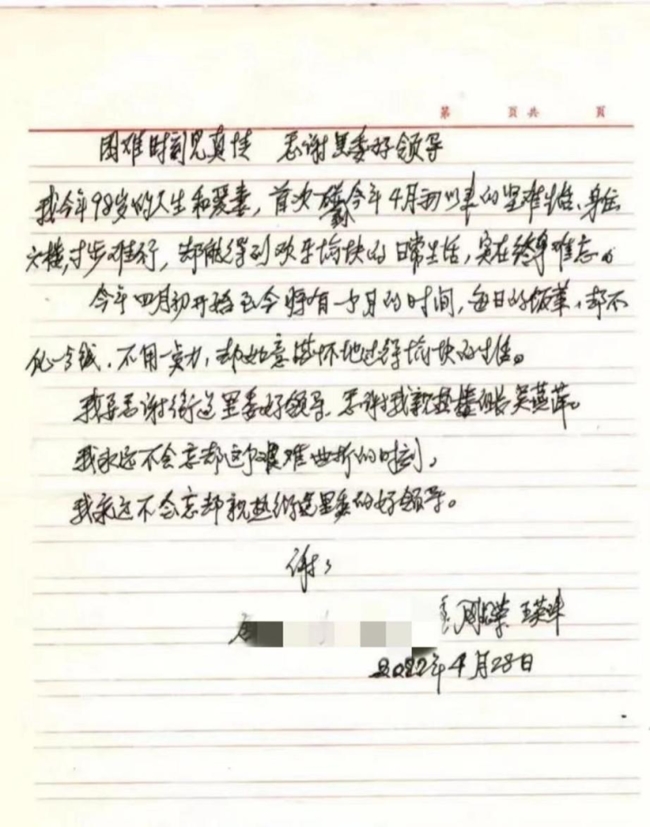 第 页共 页
困难时刻见真情 感谢里委好领导
我今年98岁的人生和爱妻,首次 今年4月初以来的坚难生活、身住
六楼,寸步难行,却能得到欢乐愉快的日常生活,实在终身难忘。
今年四月初开始至今将有一个月的时间,每日的饭菜,却不
化一分钱,不用一点力,却如意 怀地过得愉快的生活。
我 感谢街道里委好领导、感谢我亲热楼组长吴燕萍。
我永远不会忘却这 艰难曲折的时刻,
我永远不会忘却亲热街道里委的好领导。
谢谢
2022年4月28日